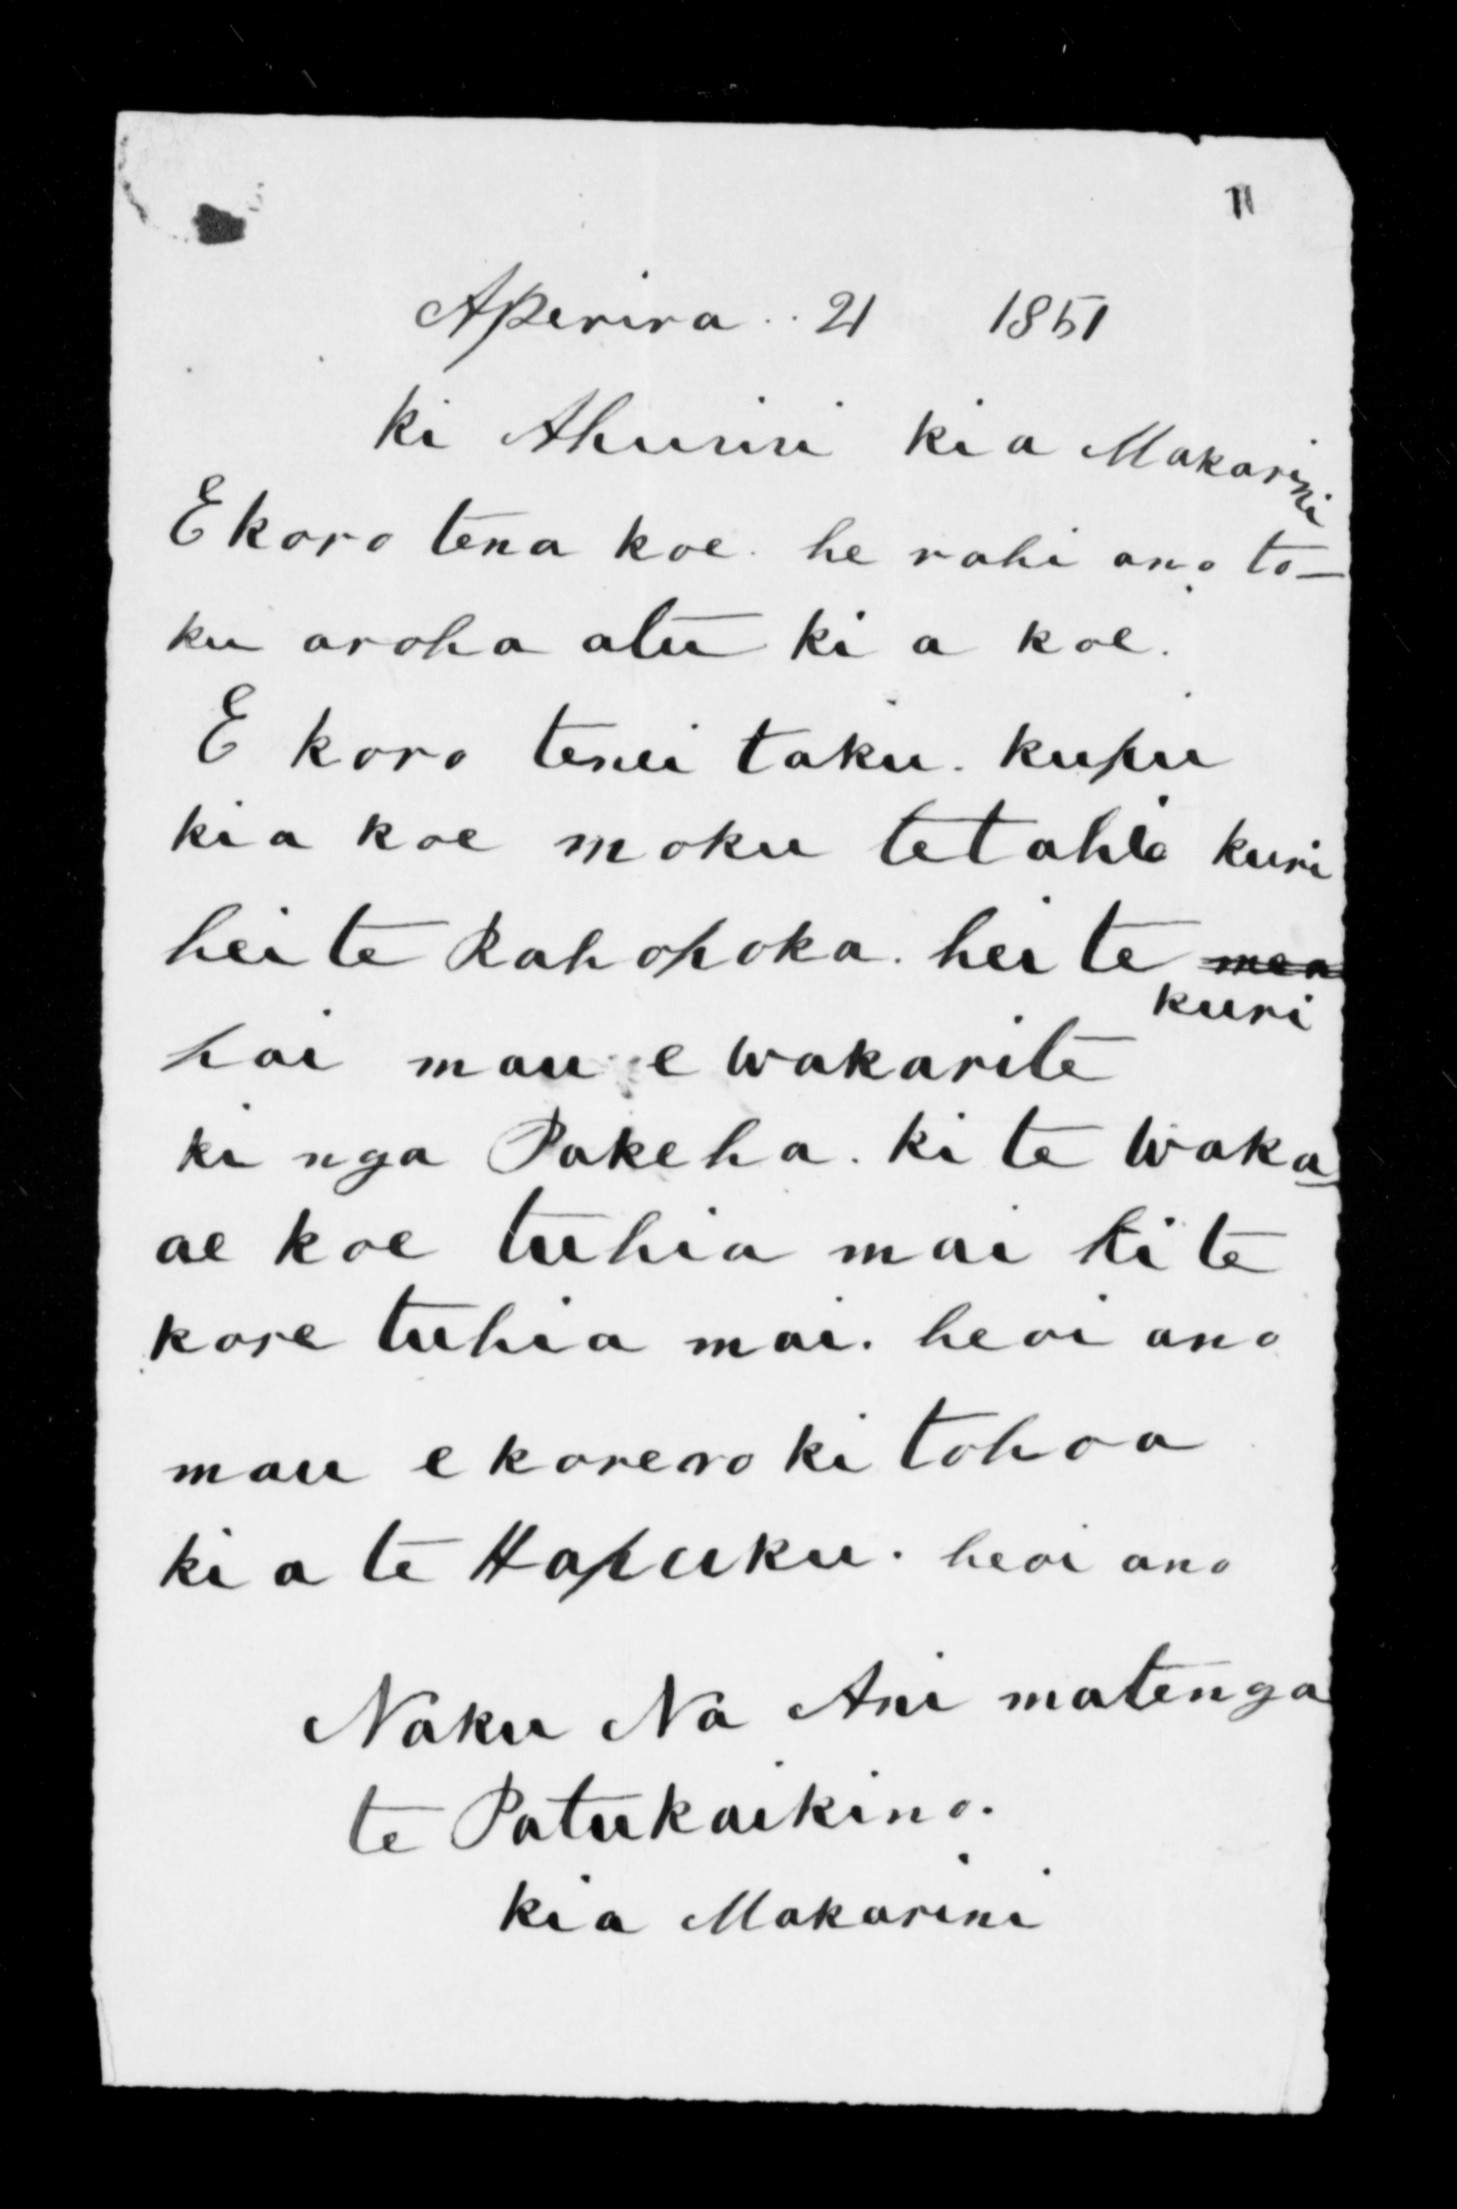 11
Aperira . . 21 1851
ki Ahuriri kia Makarini
E koro tena koe. he rahi ano to-
ku aroha atu ki a koe.
E koro tenei taku. kupu
kia koe moku tetahi kuri
hei te Rahopoka. hei te
kuri
hai mau e wakarite
ki nga Pakeha. ki te waka
ae koe tuhia mai ki te
kore tuhia mai. heoi ano
mau e korero ki tohoa
ki a te Hapuku. heoi ano
Naku Na Ani matenga
te Patukaikino.
kia Makarini